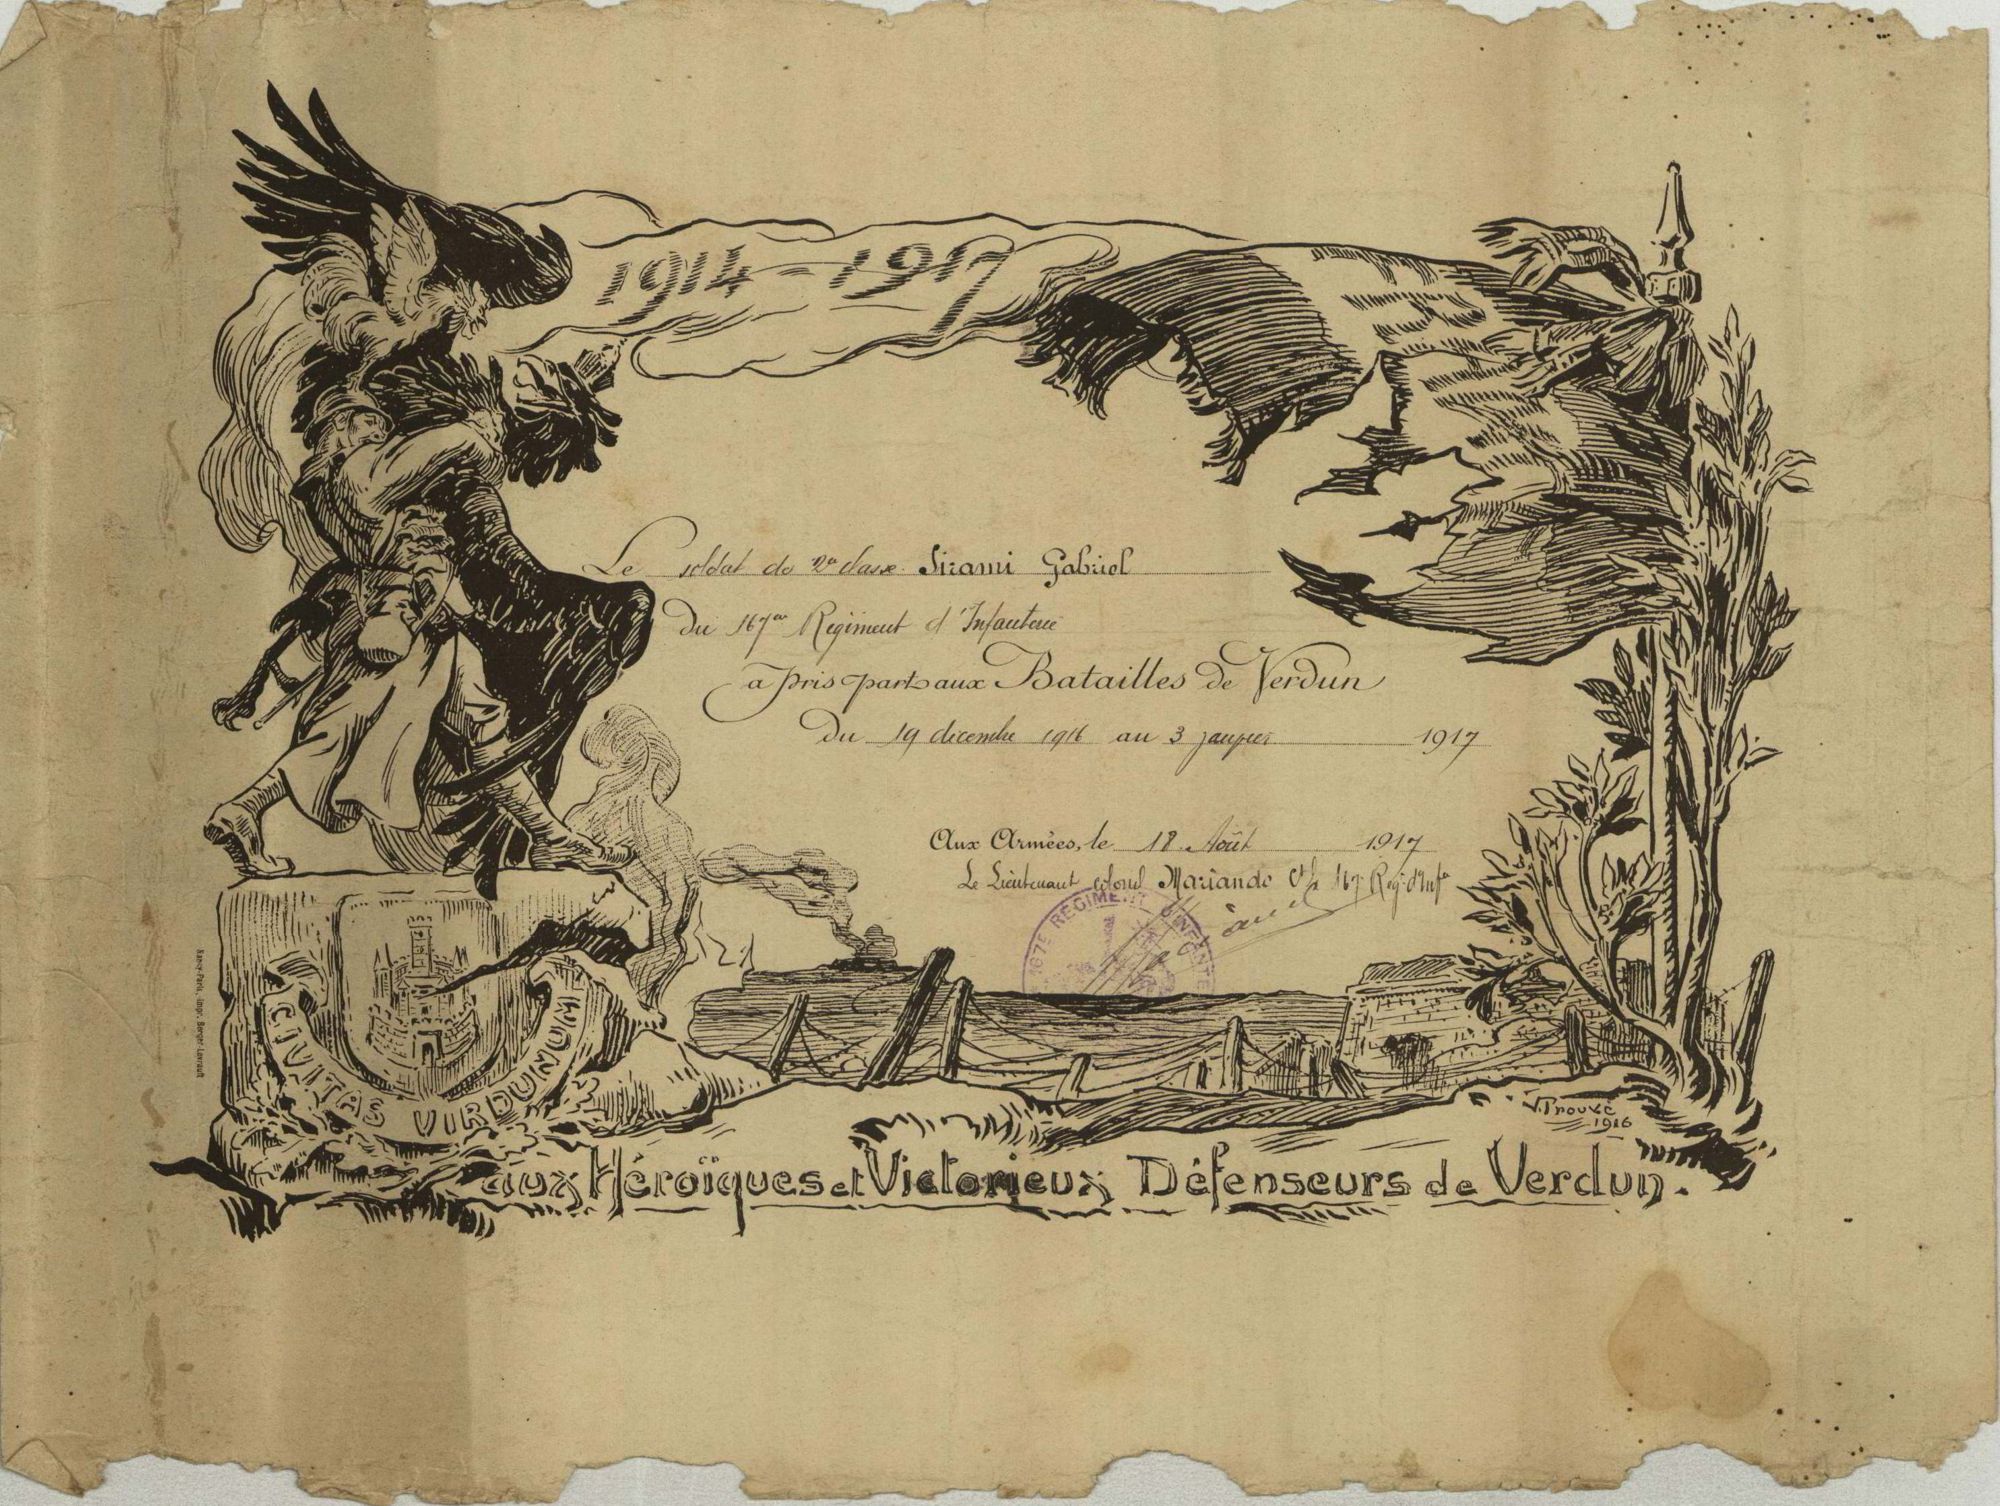 1914-1917
Le soldat de 2e classe Sirami Gabriel
Du 167e Régiment d'Infanterie
a pris part aux Batailles de Verdun
Du 19 décembre 1916 au 3 janvier 1917
Aux Armées, le 18 Août 1917
Le Lieutenant colonel Mariande Ct le 167e Reg. d'Infie
167E REGIMENT D'INFANTERIE
CIVITAS VIRDUNUM
V. Prouvé
1916
aux Héroïques et Victorieux Défenseurs de Verdun.
Nancy-Paris, Impr. Berger-Levrault